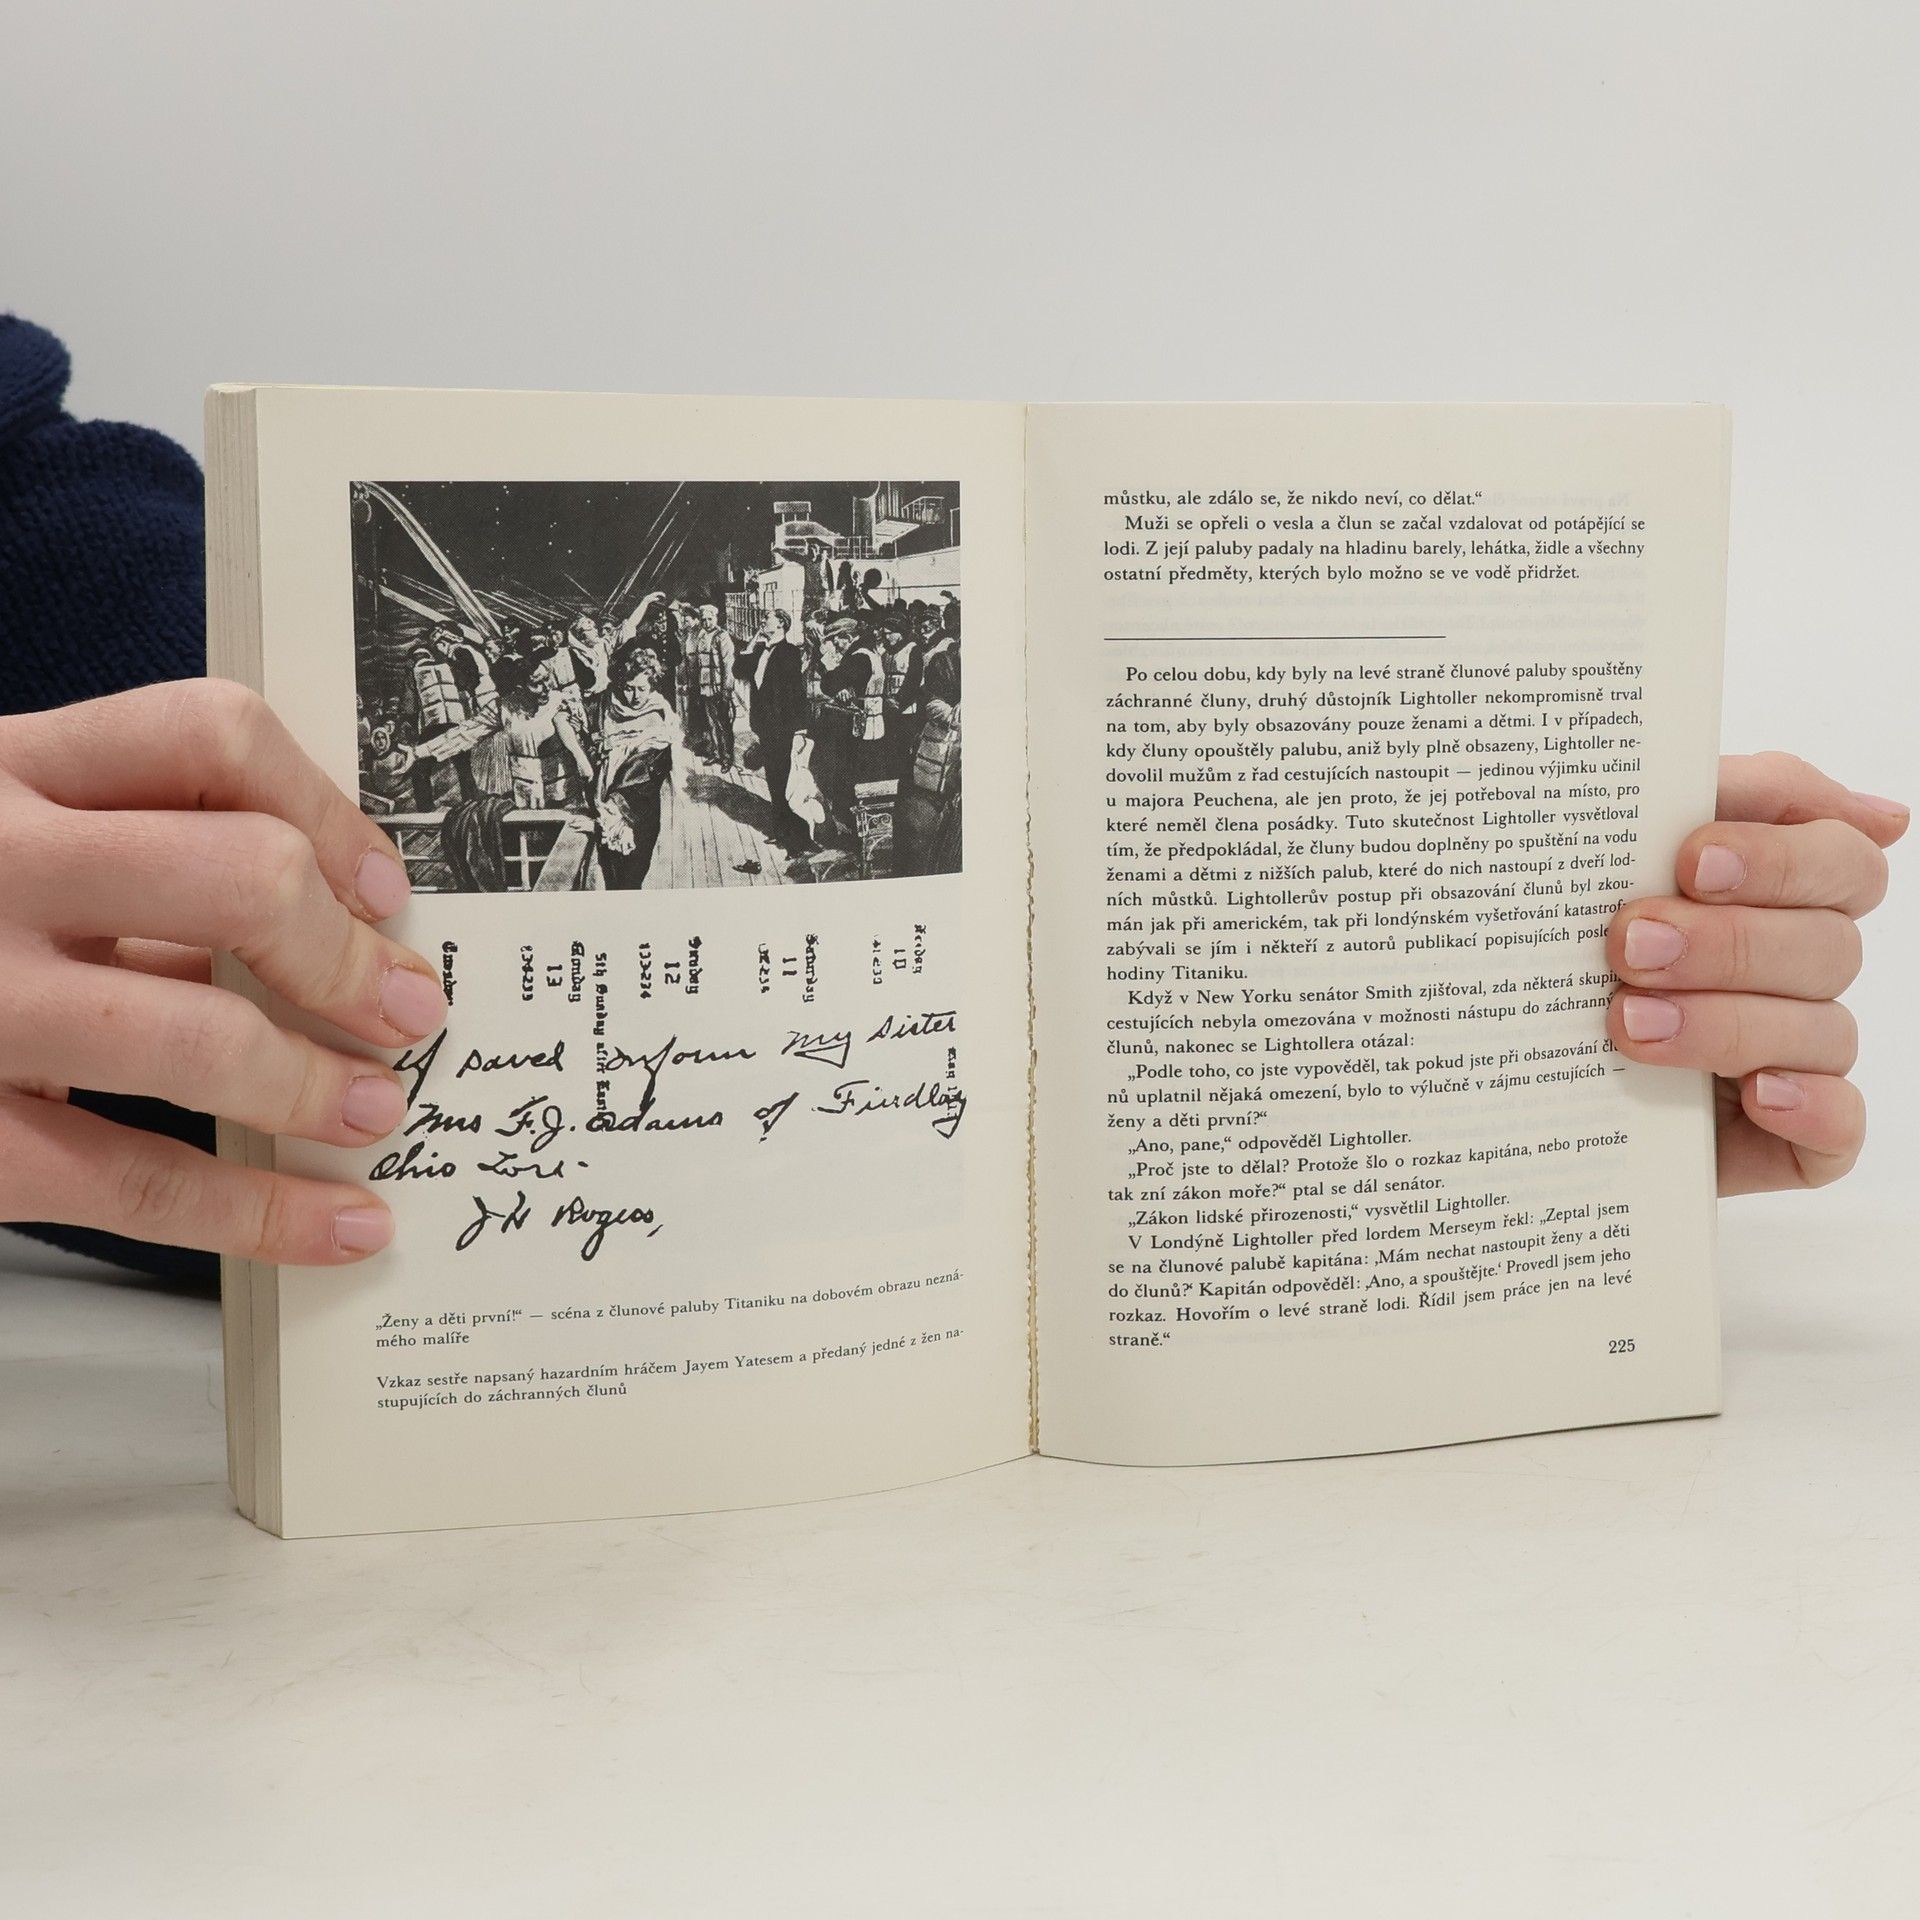 Friday
10
Saturday
11
Sunday
12
133-234
5th Sunday after
Monday
13
If saved inform my sister
Mrs F. J. Adams of Findlay
Ohio Lost
J H Rogers,
„Ženy a děti první!“ — scéna z člunové paluby Titaniku na dobovém obrazu nezná-
mého malíře
Vzkaz sestře napsaný hazardním hráčem Jayem Yatesem a předaný jedné z žen na-
stupujících do záchranných člunů
můstku, ale zdálo se, že nikdo neví, co dělat.“
Muži se opřeli o vesla a člun se začal vzdalovat od potápějící se
lodi. Z její paluby padaly na hladinu barely, lehátka, židle a všechny
ostatní předměty, kterých bylo možno se ve vodě přidržet.
Po celou dobu, kdy byly na levé straně člunové paluby spouštěny
záchranné čluny, druhý důstojník Lightoller nekompromisně trval
na tom, aby byly obsazovány pouze ženami a dětmi. I v případech,
kdy čluny opouštěly palubu, aniž byly plně obsazeny, Lightoller ne-
dovolil mužům z řad cestujících nastoupit — jedinou výjimku učinil
u majora Peuchena, ale jen proto, že jej potřeboval na místo, pro
které neměl člena posádky. Tuto skutečnost Lightoller vysvětloval
tím, že předpokládal, že čluny budou doplněny po spuštění na vodu
ženami a dětmi z nižších palub, které do nich nastoupí z dveří lod-
ních můstků. Lightollerův postup při obsazování člunů byl zkou-
mán jak při americkém, tak při londýnském vyšetřování katastrof
zabývali se jím i někteří z autorů publikací popisujících
hodiny Titaniku.
Když v New Yorku senátor Smith zjišťoval, zda některá
cestujících nebyla omezována v možnosti nástupu do
člunů, nakonec se Lightollera otázal:
„Podle toho, co jste vypověděl, tak pokud jste při obsazování
nů uplatnil nějaká omezení, bylo to výlučně v zájmu cestujících —
ženy a děti první?“
„Ano, pane,“ odpověděl Lightoller.
„Proč jste to dělal? Protože šlo o rozkaz kapitána, nebo protože
tak zní zákon moře?“ ptal se dál senátor.
„Zákon lidské přirozenosti,“ vysvětlil Lightoller.
V Londýně Lightoller před lordem Merseym řekl: „Zeptal jsem
se na člunové palubě kapitána: ‚Mám nechat nastoupit ženy a děti
do člunů?‘ Kapitán odpověděl: ‚Ano, a spouštějte.‘ Provedl jsem jeho
rozkaz. Hovořím o levé straně lodi. Řídil jsem práce jen na levé
straně.“
225